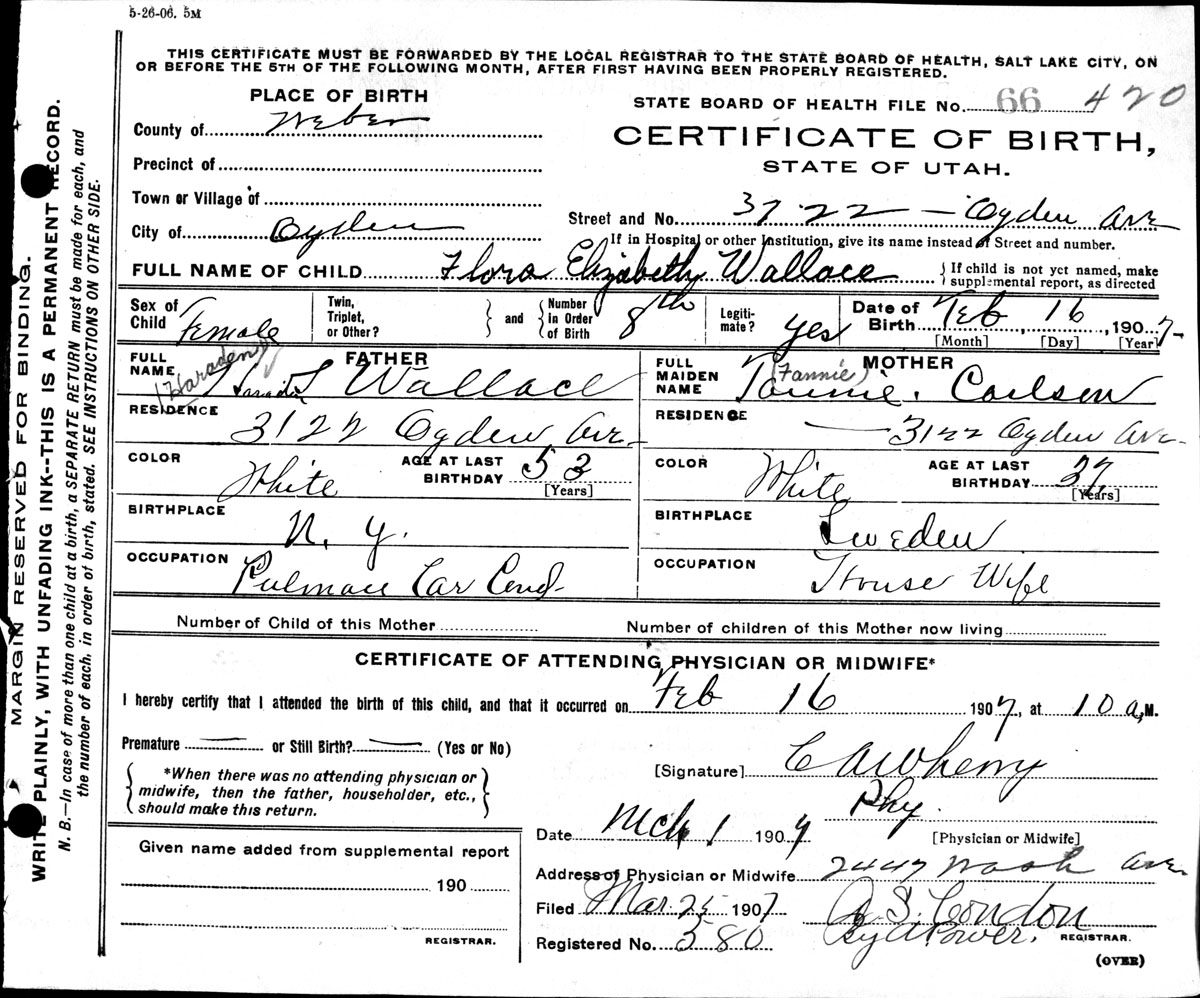 5-26-06. 5M
THIS CERTIFICATE MUST BE FORWARDED BY THE LOCAL REGISTRAR TO THE STATE BOARD OF HEALTH, SALT LAKE CITY, ON
OR BEFORE THE 5TH OF THE FOLLOWING MONTH, AFTER FIRST HAVING BEEN PROPERLY REGISTERED.
MARGIN RESERVED FOR BINDING.
WRITE PLAINLY, WITH UNFADING INK--THIS IS A PERMANENT RECORD.
N. B.—In case of more than one child at a birth, a SEPARATE RETURN must be made for each, and
the number of each, in order of birth, stated. SEE INSTRUCTIONS ON OTHER SIDE.
PLACE OF BIRTH
County of Weber
Precinct of
Town or Village of
City of Ogden
STATE BOARD OF HEALTH FILE No. 66 420
CERTIFICATE OF BIRTH,
STATE OF UTAH.
Street and No. 3722 — Ogden Ave
If in Hospital or other Institution, give its name instead of Street and number.
FULL NAME OF CHILD Flora Elizabeth Wallace { If child is not yet named, make
supplemental report, as directed
Sex of Child Female
Twin, Triplet, or Other? } and { Number in Order of Birth 8th
Legitimate? yes
Date of Birth Feb, 16, 1907
[Month] [Day] [Year]
FATHER
FULL NAME (Haraden) Wallace
RESIDENCE 3122 Ogden Ave
COLOR White AGE AT LAST BIRTHDAY 53
[Years]
BIRTHPLACE N. Y.
OCCUPATION Pulman Car Cond
MOTHER
FULL MAIDEN NAME (Fannie) Carlson
RESIDENCE — 3122 Ogden Ave
COLOR White AGE AT LAST BIRTHDAY 37
[Years]
BIRTHPLACE Sweden
OCCUPATION House Wife
Number of Child of this Mother
Number of children of this Mother now living
CERTIFICATE OF ATTENDING PHYSICIAN OR MIDWIFE*
I hereby certify that I attended the birth of this child, and that it occurred on Feb 16 1907, at 10 a, M.
Premature — or Still Birth? — (Yes or No)
{ *When there was no attending physician or
midwife, then the father, householder, etc.,
should make this return. }
[Signature]
Phy.
[Physician or Midwife]
Date Mch 1 1907
Address of Physician or Midwife 2447 Wash Ave
Filed Mar. 25 1907
Registered No. 380
A. S. Condon
By A Power. REGISTRAR.
Given name added from supplemental report
190
REGISTRAR.
(OVER)